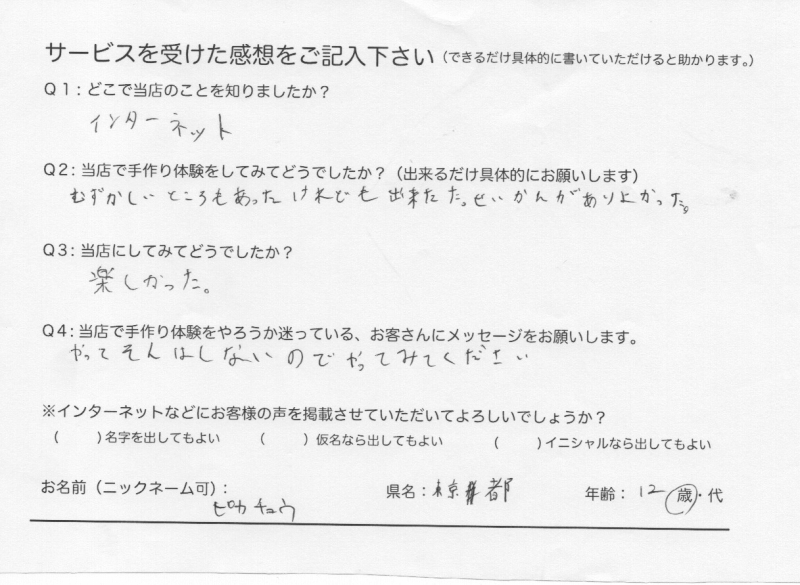 サービスを受けた感想をご記入下さい（できるだけ具体的に書いていただけると助かります。）
Q1：どこで当店のことを知りましたか？
インターネット
Q2：当店で手作り体験をしてみてどうでしたか？（出来るだけ具体的にお願いします）
むずかしいところもあったけれども出来たた。せいかんがありよかった。
Q3：当店にしてみてどうでしたか？
楽しかった。
Q4：当店で手作り体験をやろうか迷っている、お客さんにメッセージをお願いします。
やってそんはしないのでやってみてください
※インターネットなどにお客様の声を掲載させていただいてよろしいでしょうか？
（　　）名字を出してもよい　（　　）仮名なら出してもよい　（　　）イニシャルなら出してもよい
お名前（ニックネーム可）：ピカチュウ　県名：東京都　年齢：12歳・代